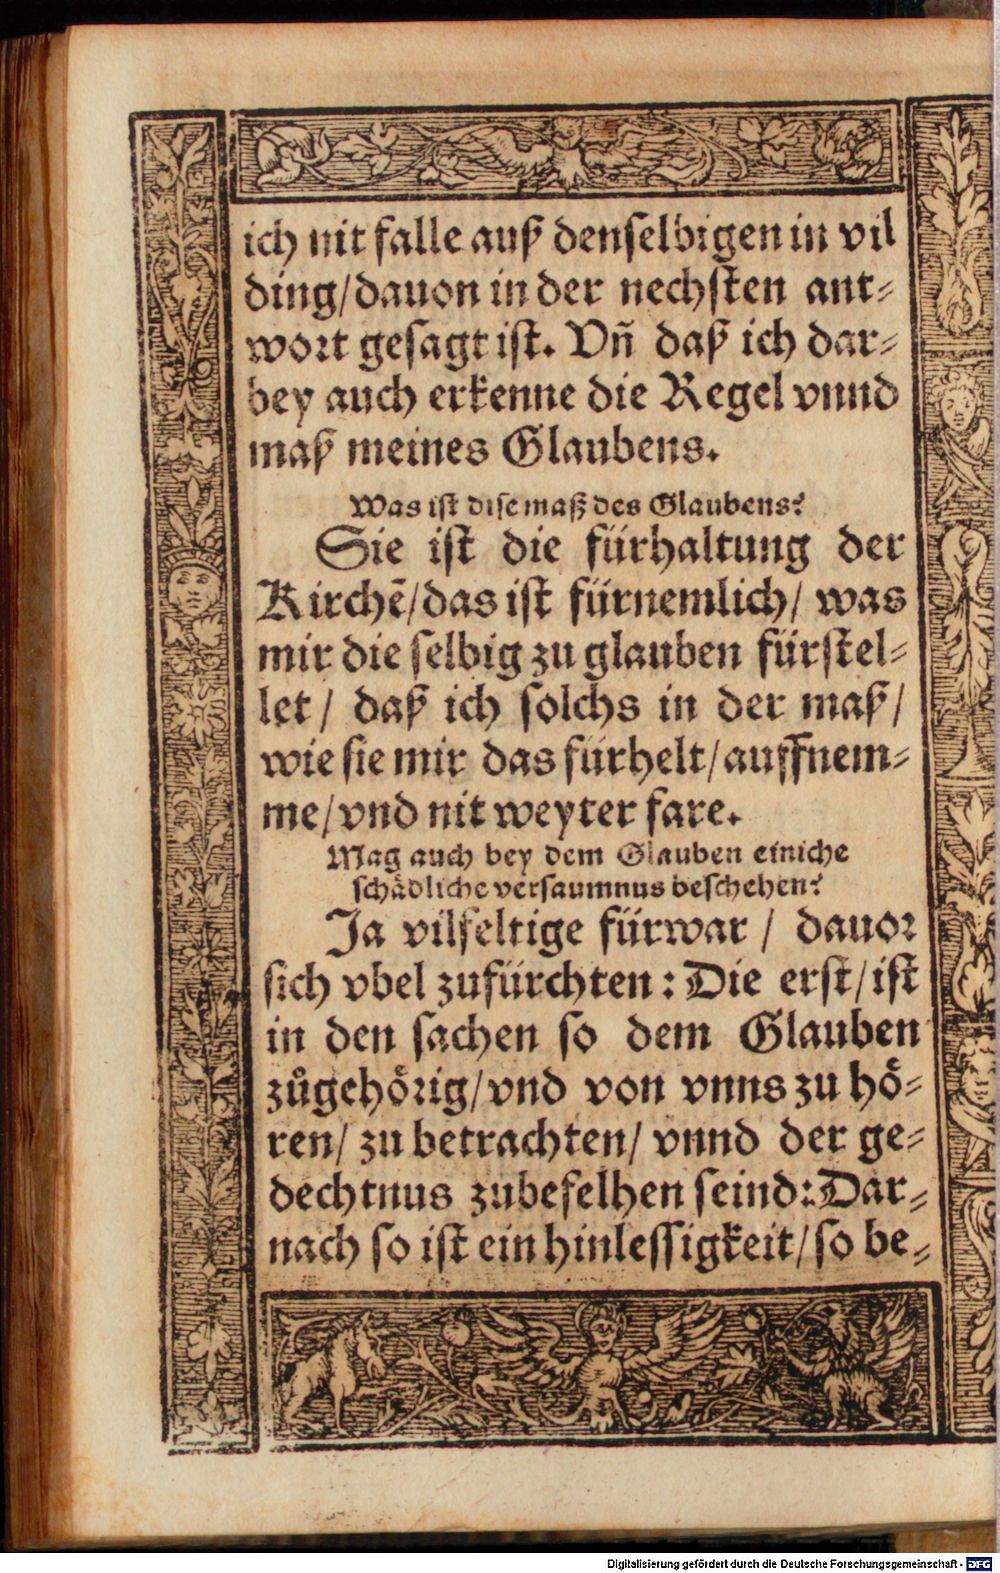 ich nit falle auß denselbigen in vil
ding/dauon in der nechsten ant-
wort gesagt ist. Vñ daß ich dar-
bey auch erkenne die Regel vnnd
maß meines Glaubens.
Was ist dise maß des Glaubens?
Sie ist die fürhaltung der
Kirchē/das ist fürnemlich/ was
mir die selbig zu glauben fürstel-
let / daß ich solchs in der maß/
wie sie mir das fürhelt/auffnem-
me/vnd nit weyter fare.
Mag auch bey dem Glauben einiche
schädliche versaumnus beschehen?
Ja vilfeltige fürwar / dauor
sich vbel zufürchten: Die erst/ist
in den sachen so dem Glauben
zůgehörig/vnd von vnns zu hö-
ren/ zu betrachten/ vnnd der ge-
dechtnus zubefelhen seind: Dar-
nach so ist ein hinlessigkeit/so be-
Digitalisierung gefördert durch die Deutsche Forschungsgemeinschaft - DFG